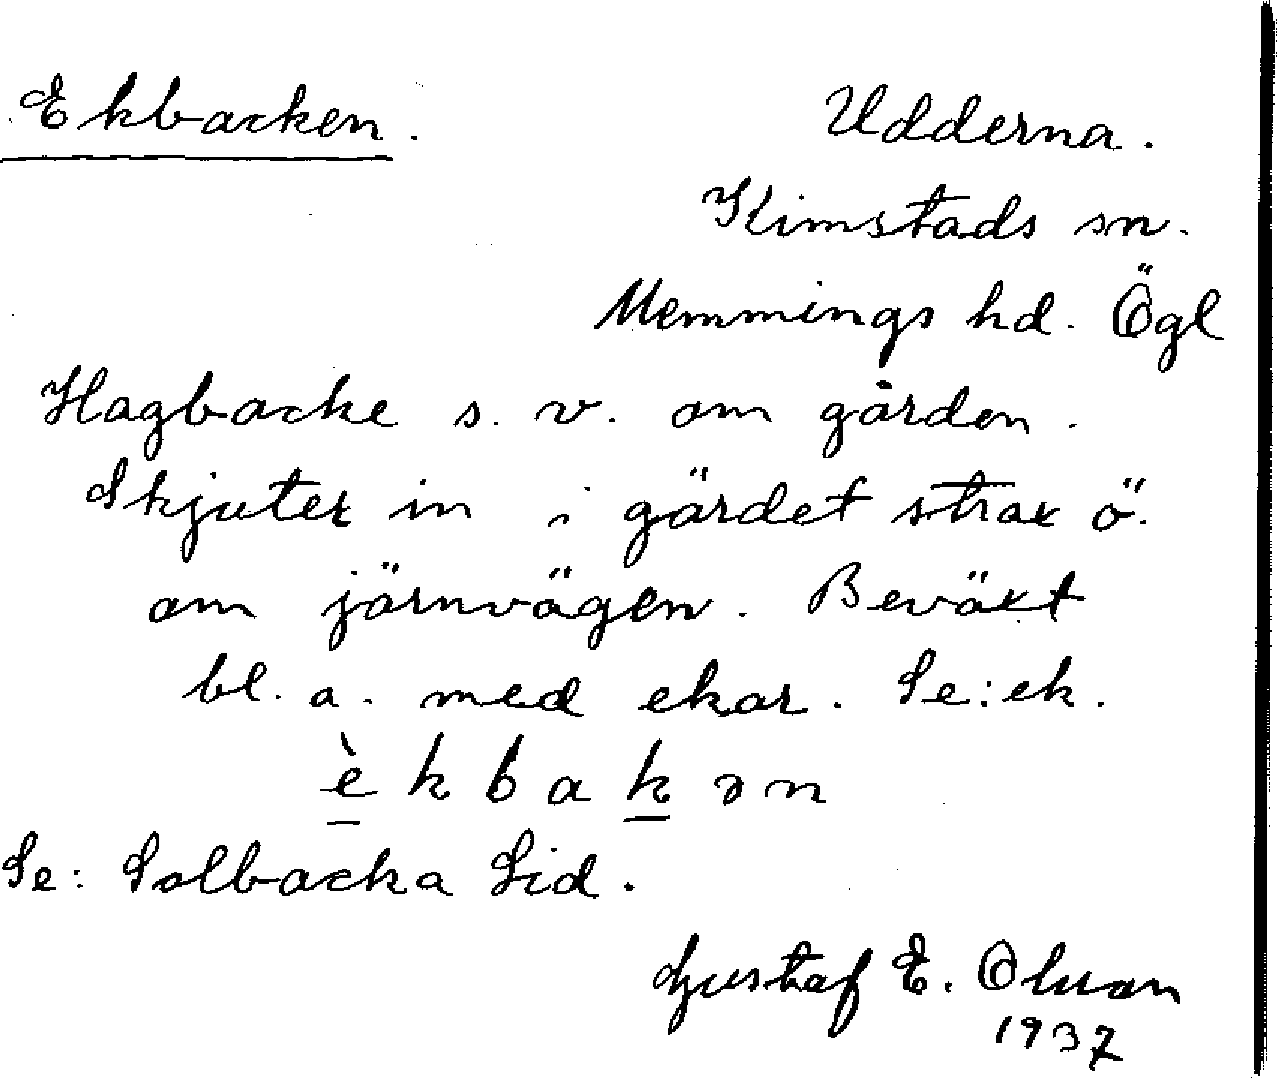 Ekbacken. Udderna.
Kimstads sn.
Memmings hd. Ögl
Hagbacke s. v. om gården.
Skjuter in i gärdet strax ö.
om järnvägen. Beväxt
bl. a. med ekar. Se: ek.
è k b a k ə n
Se: Solbacka Sid.
Gustaf E. Olsson
1937